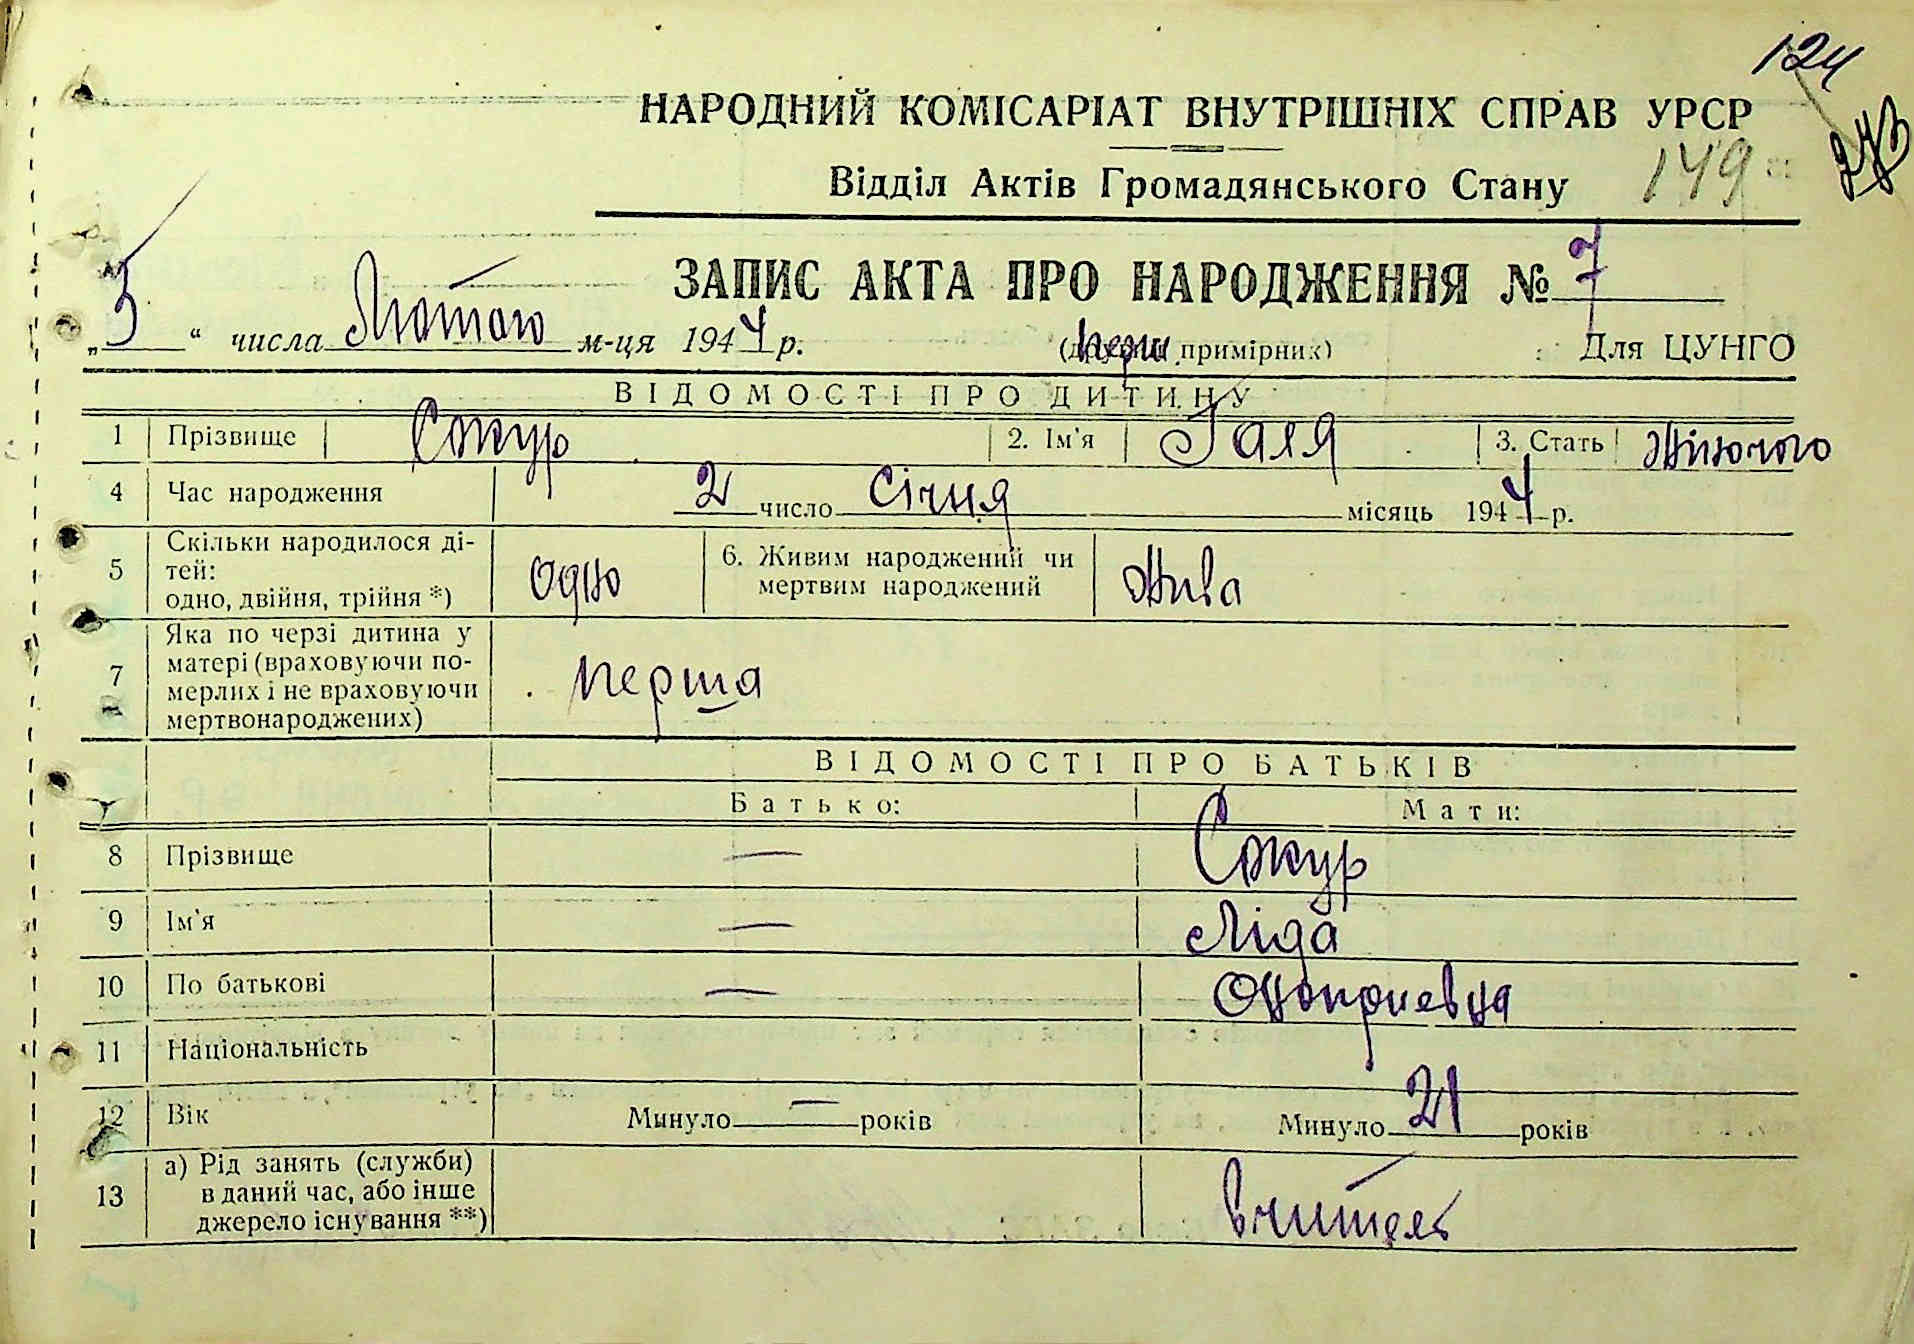 124
243
НАРОДНИЙ КОМІСАРІАТ ВНУТРІШНІХ СПРАВ УРСР
Відділ Актів Громадянського Стану 149
ЗАПИС АКТА ПРО НАРОДЖЕННЯ № 7
„5“ числа Лютого м-ця 1944 р. (перш. примірник) Для ЦУНГО
ВІДОМОСТІ ПРО ДИТИНУ
1 Прізвище Сжур 2. Ім'я Галя 3. Стать Жіночого
4 Час народження 2 число Січня місяць 1944 р.
5 Скільки народилося ді-
тей:
одно, двійня, трійня *) Одно 6. Живим народжений чи
мертвим народжений Жива
7 Яка по черзі дитина у
матері (враховуючи по-
мерлих і не враховуючи
мертвонароджених) перша
ВІДОМОСТІ ПРО БАТЬКІВ
Батько: Мати:
8 Прізвище — Сжур
9 Ім'я — Ліда
10 По батькові — Оноприевна
11 Національність
12 Вік Минуло — років Минуло 21 років
13 а) Рід занять (служби)
в даний час, або інше
джерело існування **) Вчитель